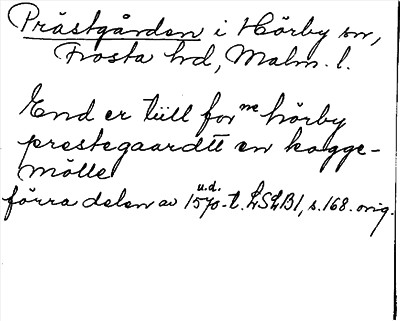 Prästgården i Hörby sn,
Frosta hd, Malm. l.
End er tiill forne hörby
prestegaardtt en kagge-
mölle
förra delen av 1570-t. u.d. LSLB1, s. 168. orig.